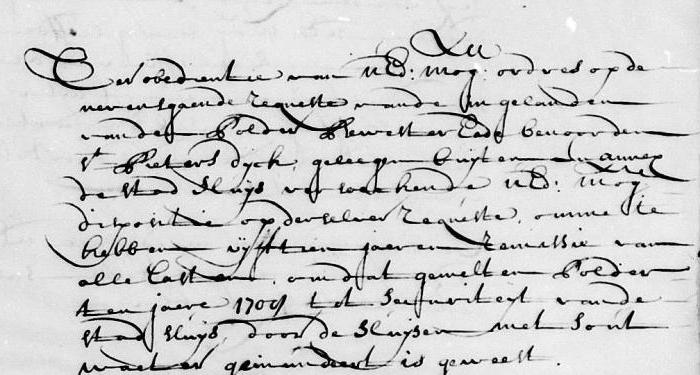 Ter obedientie van UEd: Mog: ordres op de
nevensgaende requeste vande ingelanden
vanden Polder Bewester Eede benoorden
St Pieters Dijck, geleegen buijten en annex
de stad Sluijs versoekende UEd: Mog
dispositie op derselver requeste, omme te
hebben vijfftien jaeren remissie van
alle lasten, omdat gemelten Polder
ten jaere 170 tot securiteijt vande
stad Sluijs, door de Sluijsen met sout
waeter geinundeert is geweest.